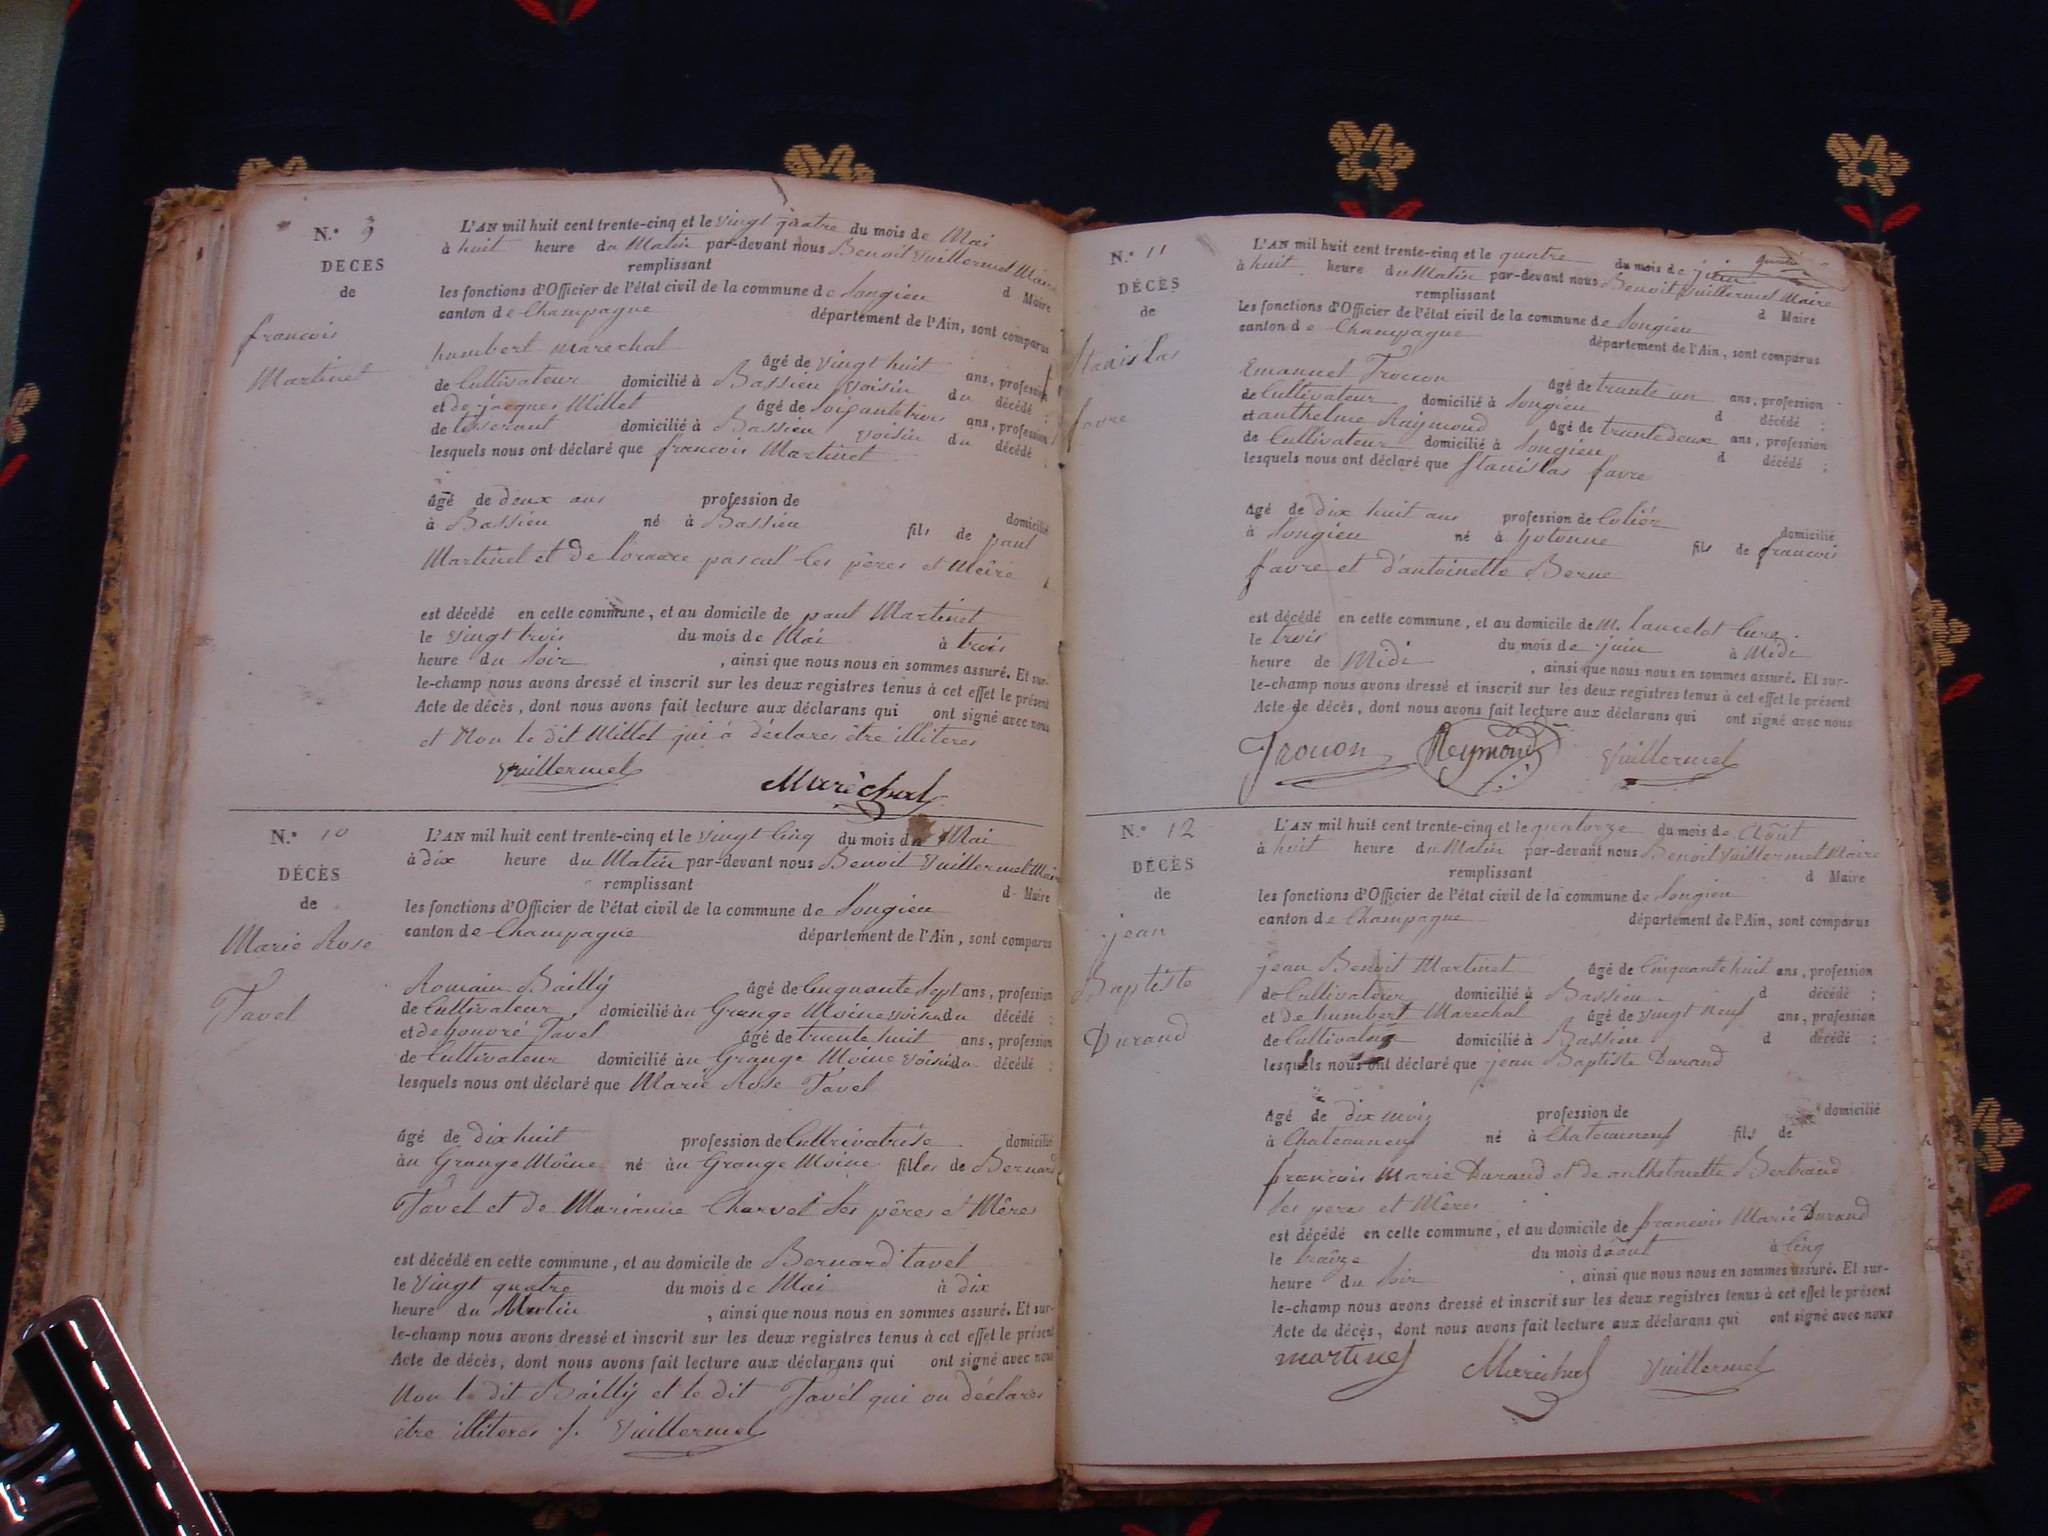 N.° 9
DECES
de
francois
Martinet
L'AN mil huit cent trente-cinq et le vingt quatre du mois de Mai
à huit heure du Matin par-devant nous Benoit Vuillermet Maire
remplissant d Maire
les fonctions d'Officier de l'état civil de la commune de Songieu
canton de Champagne département de l'Ain, sont comparus
humbert marechal âgé de vingt huit ans, profession
de Cultivateur domicilié à Bassieu voisin du décédé ;
et de jacques Millet âgé de soixante trois ans, profession
de domicilié à Bassieu voisin du décédé ;
lesquels nous ont déclaré que francois Martinet
âgé de deux ans profession de domicilié
à Bassieu né à Bassieu fils de paul
Martinet et de pascal les pères et Mère
est décédé en cette commune, et au domicile de paul Martinet
le vingt trois du mois de Mai à trois
heure du soir , ainsi que nous nous en sommes assuré. Et sur-
le-champ nous avons dressé et inscrit sur les deux registres tenus à cet effet le présent
Acte de décès, dont nous avons fait lecture aux déclarans qui ont signé avec nous
et Non le dit Millet qui à déclares être illiteres
Vuillermet Maréchal
N.° 10
DÉCÈS
de
Marie Rose
Tavel
L'AN mil huit cent trente-cinq et le vingt Cinq du mois de Mai
à dix heure du Matin par-devant nous Benoit Vuillermet Maire
remplissant d Maire
les fonctions d'Officier de l'état civil de la commune de Songieu
canton de Champagne département de l'Ain, sont comparus
Romain Bailly âgé de Cinquante Sept ans, profession
de Cultivateur domicilié àu Grange Moine voisin du décédé ;
et de honoré Tavel âgé de trente huit ans, profession
de Cultivateur domicilié àu Grange Moine voisin du décédé ;
lesquels nous ont déclaré que Marie Rose Tavel
âgé de dix huit profession de Cultivatrise domicilié
àu Grange Moine né àu Grange Moine filles de Bernard
Tavel et de Marianne Charvet Ses pères et Mères
est décédé en cette commune, et au domicile de Bernard tavel
le Vingt quatre du mois de Mai à dix
heure du Matin , ainsi que nous nous en sommes assuré. Et sur-
le-champ nous avons dressé et inscrit sur les deux registres tenus à cet effet le présent
Acte de décès, dont nous avons fait lecture aux déclarans qui ont signé avec nous
Non le dit Bailly et le dit Tavel qui on déclares
être illiteres ./. Vuillermet
N.° 11
DÉCÈS
de
Stanislas
favre
L'AN mil huit cent trente-cinq et le quatre du mois de juin
à huit heure du Matin par-devant nous Benoit Vuillermet Maire
remplissant d Maire
les fonctions d'Officier de l'état civil de la commune de Songieu
canton de Champagne département de l'Ain, sont comparus
Emanuel Trocon âgé de trante un ans, profession
de Cultivateur domicilié à Songieu d décédé ;
et anthelme Raymond âgé de trante deux ans, profession
de Cultivateur domicilié à Songieu d décédé ;
lesquels nous ont déclaré que Stanislas favre
âgé de dix huit ans profession de domicilié
à Songieu né à hotonne fils de francois
favre et d'antoinette Berne
est décédé en cette commune, et au domicile de M. lancelot Cure
le trois du mois de juin à Midi
heure de Midi , ainsi que nous nous en sommes assuré. Et sur-
le-champ nous avons dressé et inscrit sur les deux registres tenus à cet effet le présent
Acte de décès, dont nous avons fait lecture aux déclarans qui ont signé avec nous
Trocon Reymond Vuillermet
N.° 12
DÉCÈS
de
jean
Baptiste
Durand
L'AN mil huit cent trente-cinq et le quatorze du mois de Août
à huit heure du Matin par-devant nous Benoit Vuillermet Maire
remplissant d Maire
les fonctions d'Officier de l'état civil de la commune de Songieu
canton de Champagne département de l'Ain, sont comparus
jean Benoit Martinet âgé de Cinquante huit ans, profession
de Cultivateur domicilié à Bassieu d décédé ;
et de humbert Marechal âgé de vingt neuf ans, profession
de Cultivateur domicilié à Bassieu d décédé ;
lesquels nous ont déclaré que jean Baptiste Durand
âgé de dix mois profession de domicilié
à Chateauneuf né à Chateauneuf fils de
francois Marie Durand et de Bertrand
Ses peres et Mères
est décédé en cette commune, et au domicile de francois Marie Durand
le traize du mois d'août à Cinq
heure du Soir , ainsi que nous nous en sommes assuré. Et sur-
le-champ nous avons dressé et inscrit sur les deux registres tenus à cet effet le présent
Acte de décès, dont nous avons fait lecture aux déclarans qui ont signé avec nous
martinet Maréchal Vuillermet